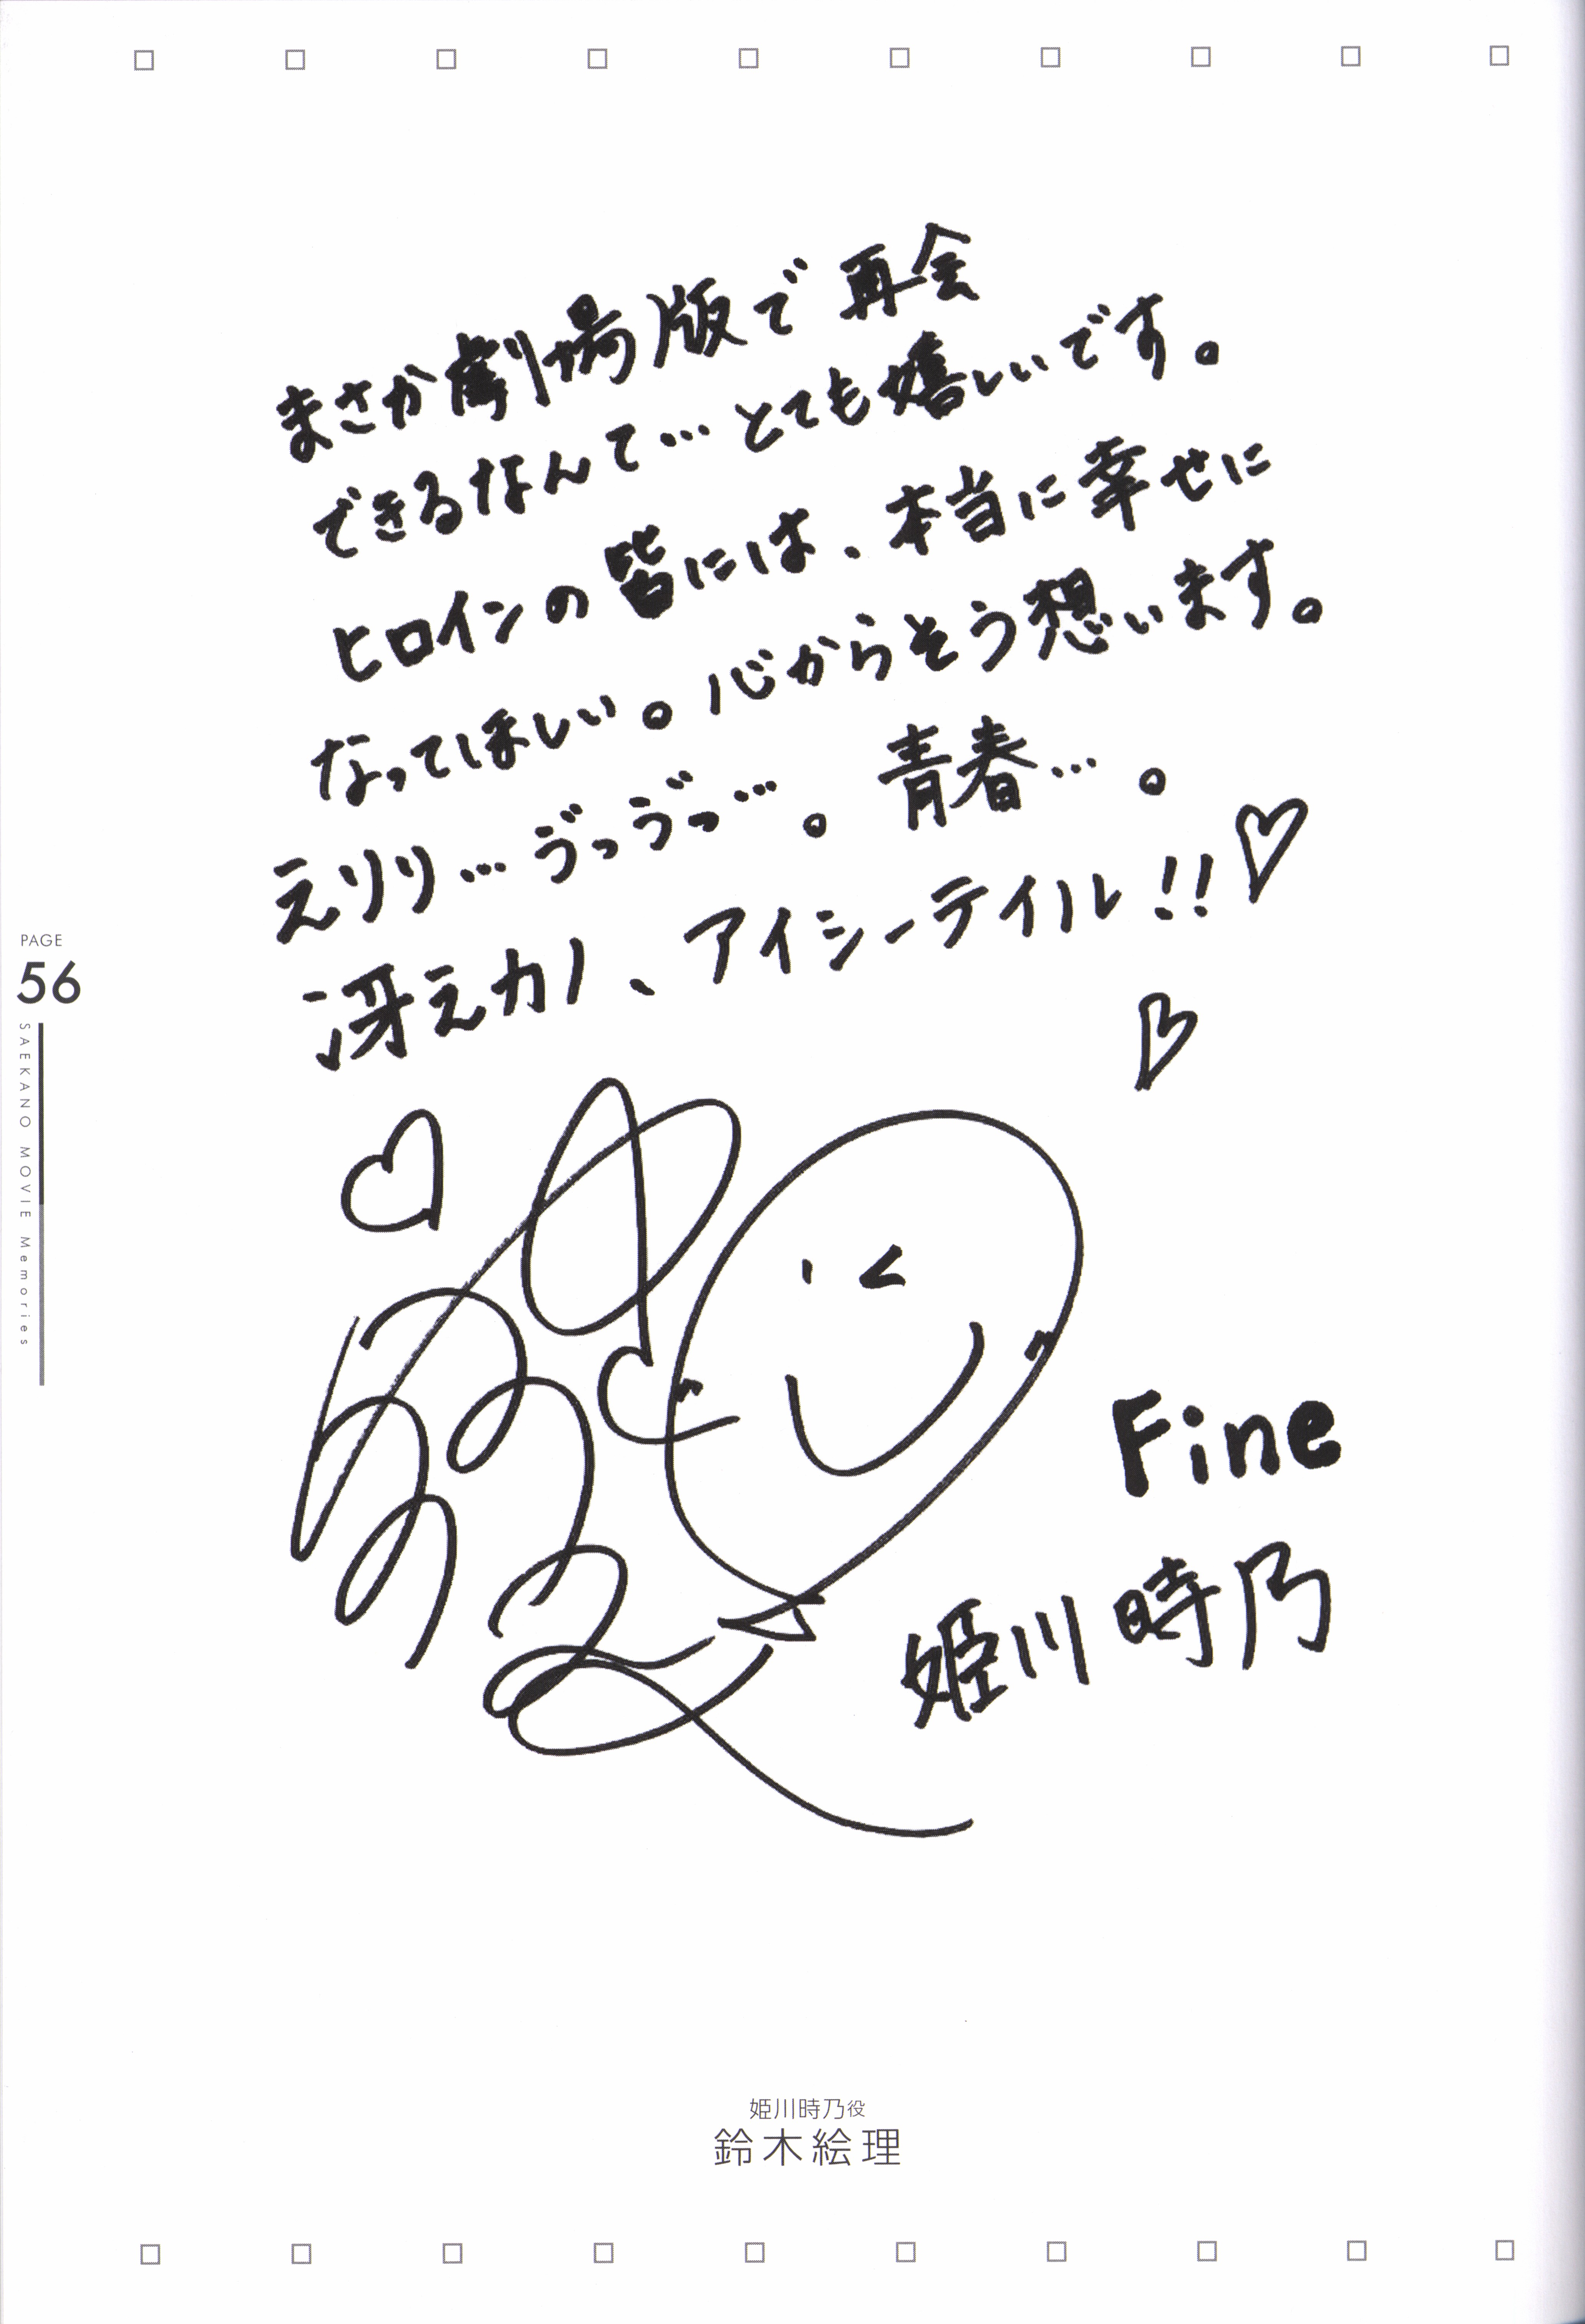 まさか劇場版で再会
できるなんて…とても嬉しいです。
ヒロインの皆には、本当に幸せに
なってほしい。心からそう想います。
えりり…ゔっゔっ…。青春…。
冴えカノ、アイシーテイル!!
Fine
姫川時乃
PAGE
56
SAEKANO MOVIE Memories
姫川時乃役
鈴木絵理